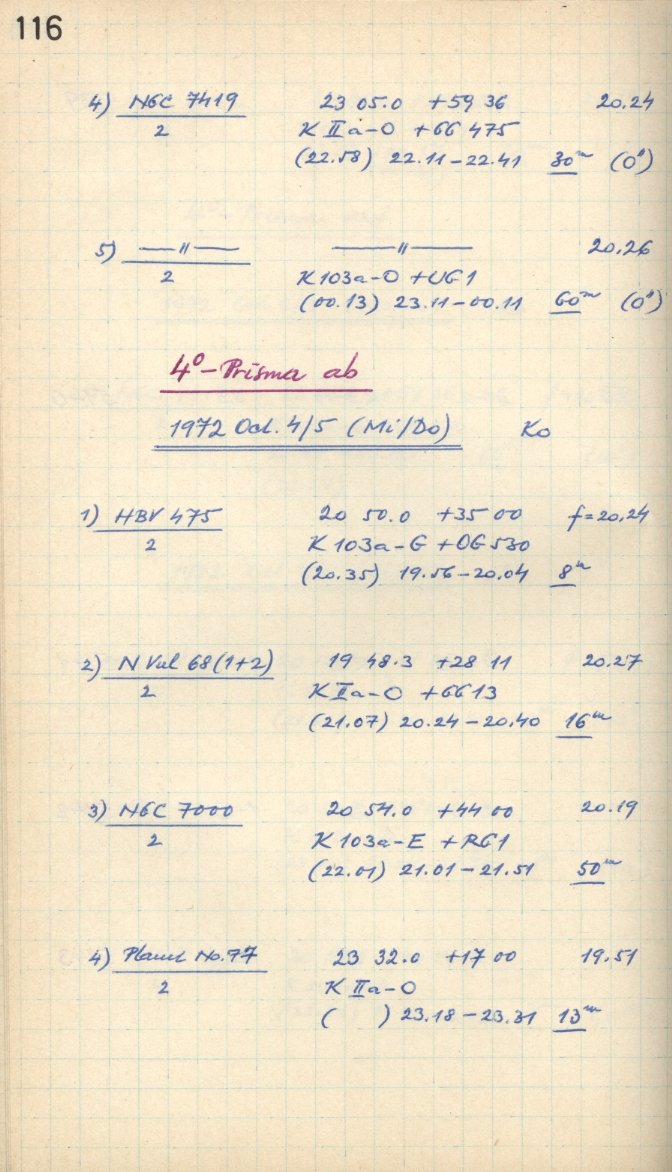 116
4) NGC 7419 23 05.0 +59 36 20.24
2 K IIa-O +GG 475
(22.58) 22.11-22.41 30m (0")
5) —— " —— —— " —— 20.26
2 K103a-O +UG1
(00.13) 23.11-00.11 60m (0")
4°-Prisma ab
1972 Oct. 4/5 (Mi/Do) Ko
1) HBV 475 20 50.0 +35 00 f=20.24
2 K 103a-G +OG530
(20.35) 19.56-20.04 8m
2) N Vul 68(1+2) 19 48.3 +28 11 20.27
2 K IIa-O +GG13
(21.07) 20.24-20.40 16m
3) NGC 7000 20 54.0 +44 00 20.19
2 K 103a-E +RG1
(22.01) 21.01-21.51 50m
4) Planet No. 77 23 32.0 +17 00 19.51
2 K IIa-O
( ) 23.18-23.31 13m